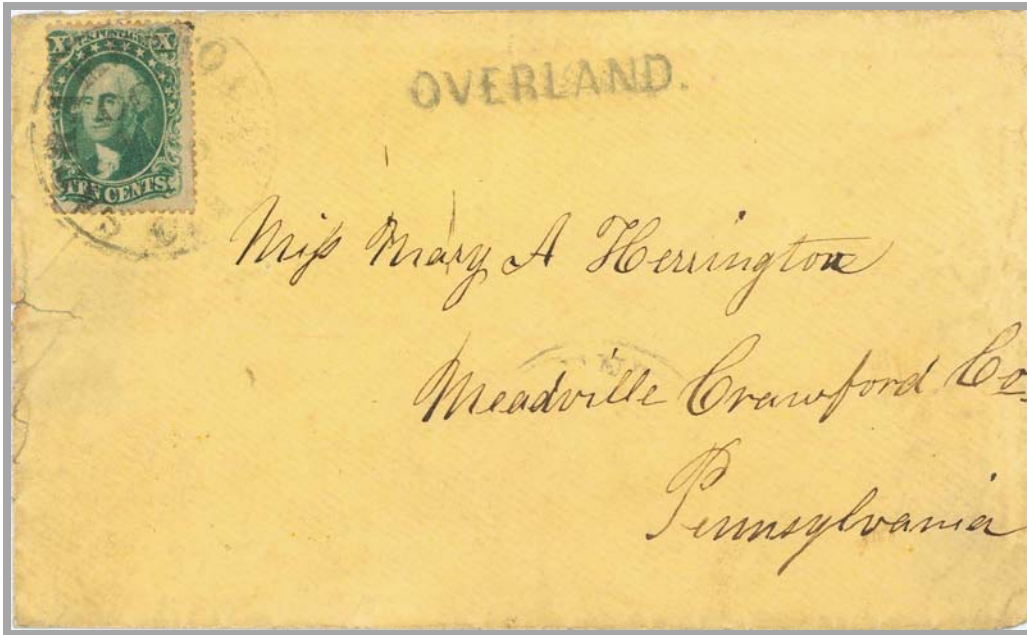 X U.S. POSTAGE X
TEN CENTS
OVERLAND.
Miss Mary A Herrington
Meadville Crawford Co.
Pennsylvania